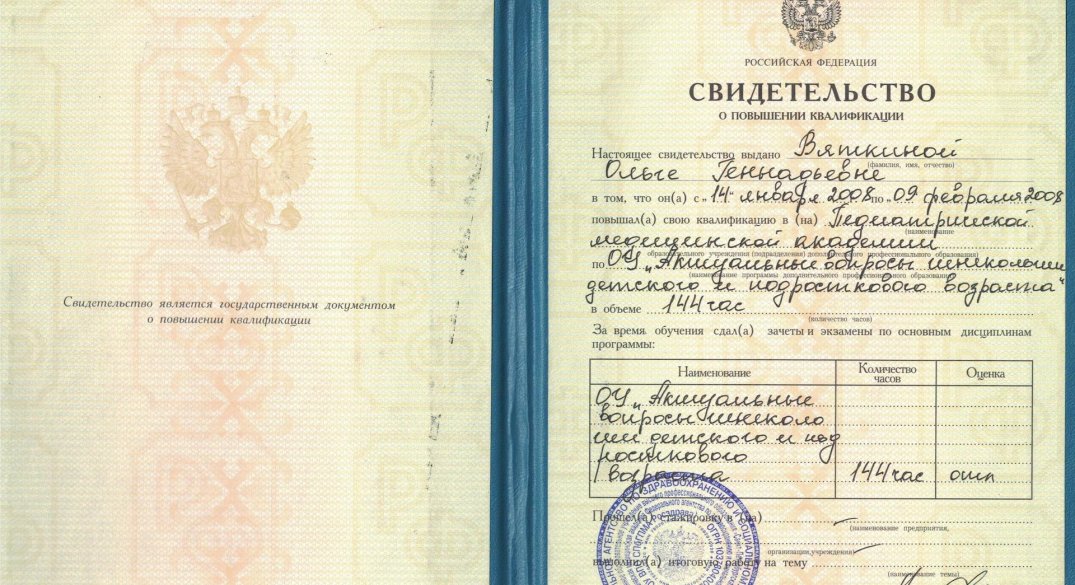 Свидетельство является государственным документом
о повышении квалификации
РОССИЙСКАЯ ФЕДЕРАЦИЯ
СВИДЕТЕЛЬСТВО
О ПОВЫШЕНИИ КВАЛИФИКАЦИИ
Настоящее свидетельство выдано Вяткиной
(фамилия, имя, отчество)
Ольге Геннадьевне
в том, что он(а) с „14“ января 2008 по „09 февраля 2008
повышал(а) свою квалификацию в (на) Педиатрической
(наименование
медицинской академии
образовательного учреждения (подразделения) дополнительного профессионального образования)
по ОУ „Актуальные вопросы гинекологии
(наименование программы дополнительного профессионального образования)
детского и подросткового возраста“
в объеме 144 час
(количество часов)
За время обучения сдал(а) зачеты и экзамены по основным дисциплинам
программы:
Наименование Количество часов Оценка
ОУ „Актуальные
вопросы гинеколо
гии детского и под
росткового
возраста 144 час отл
Прошел(а) стажировку в (на)
(наименование предприятия,
организации, учреждения)
выполнил(а) итоговую работу на тему
(наименование темы)
ПО ЗДРАВООХРАНЕНИЮ И СОЦИАЛЬНОМ